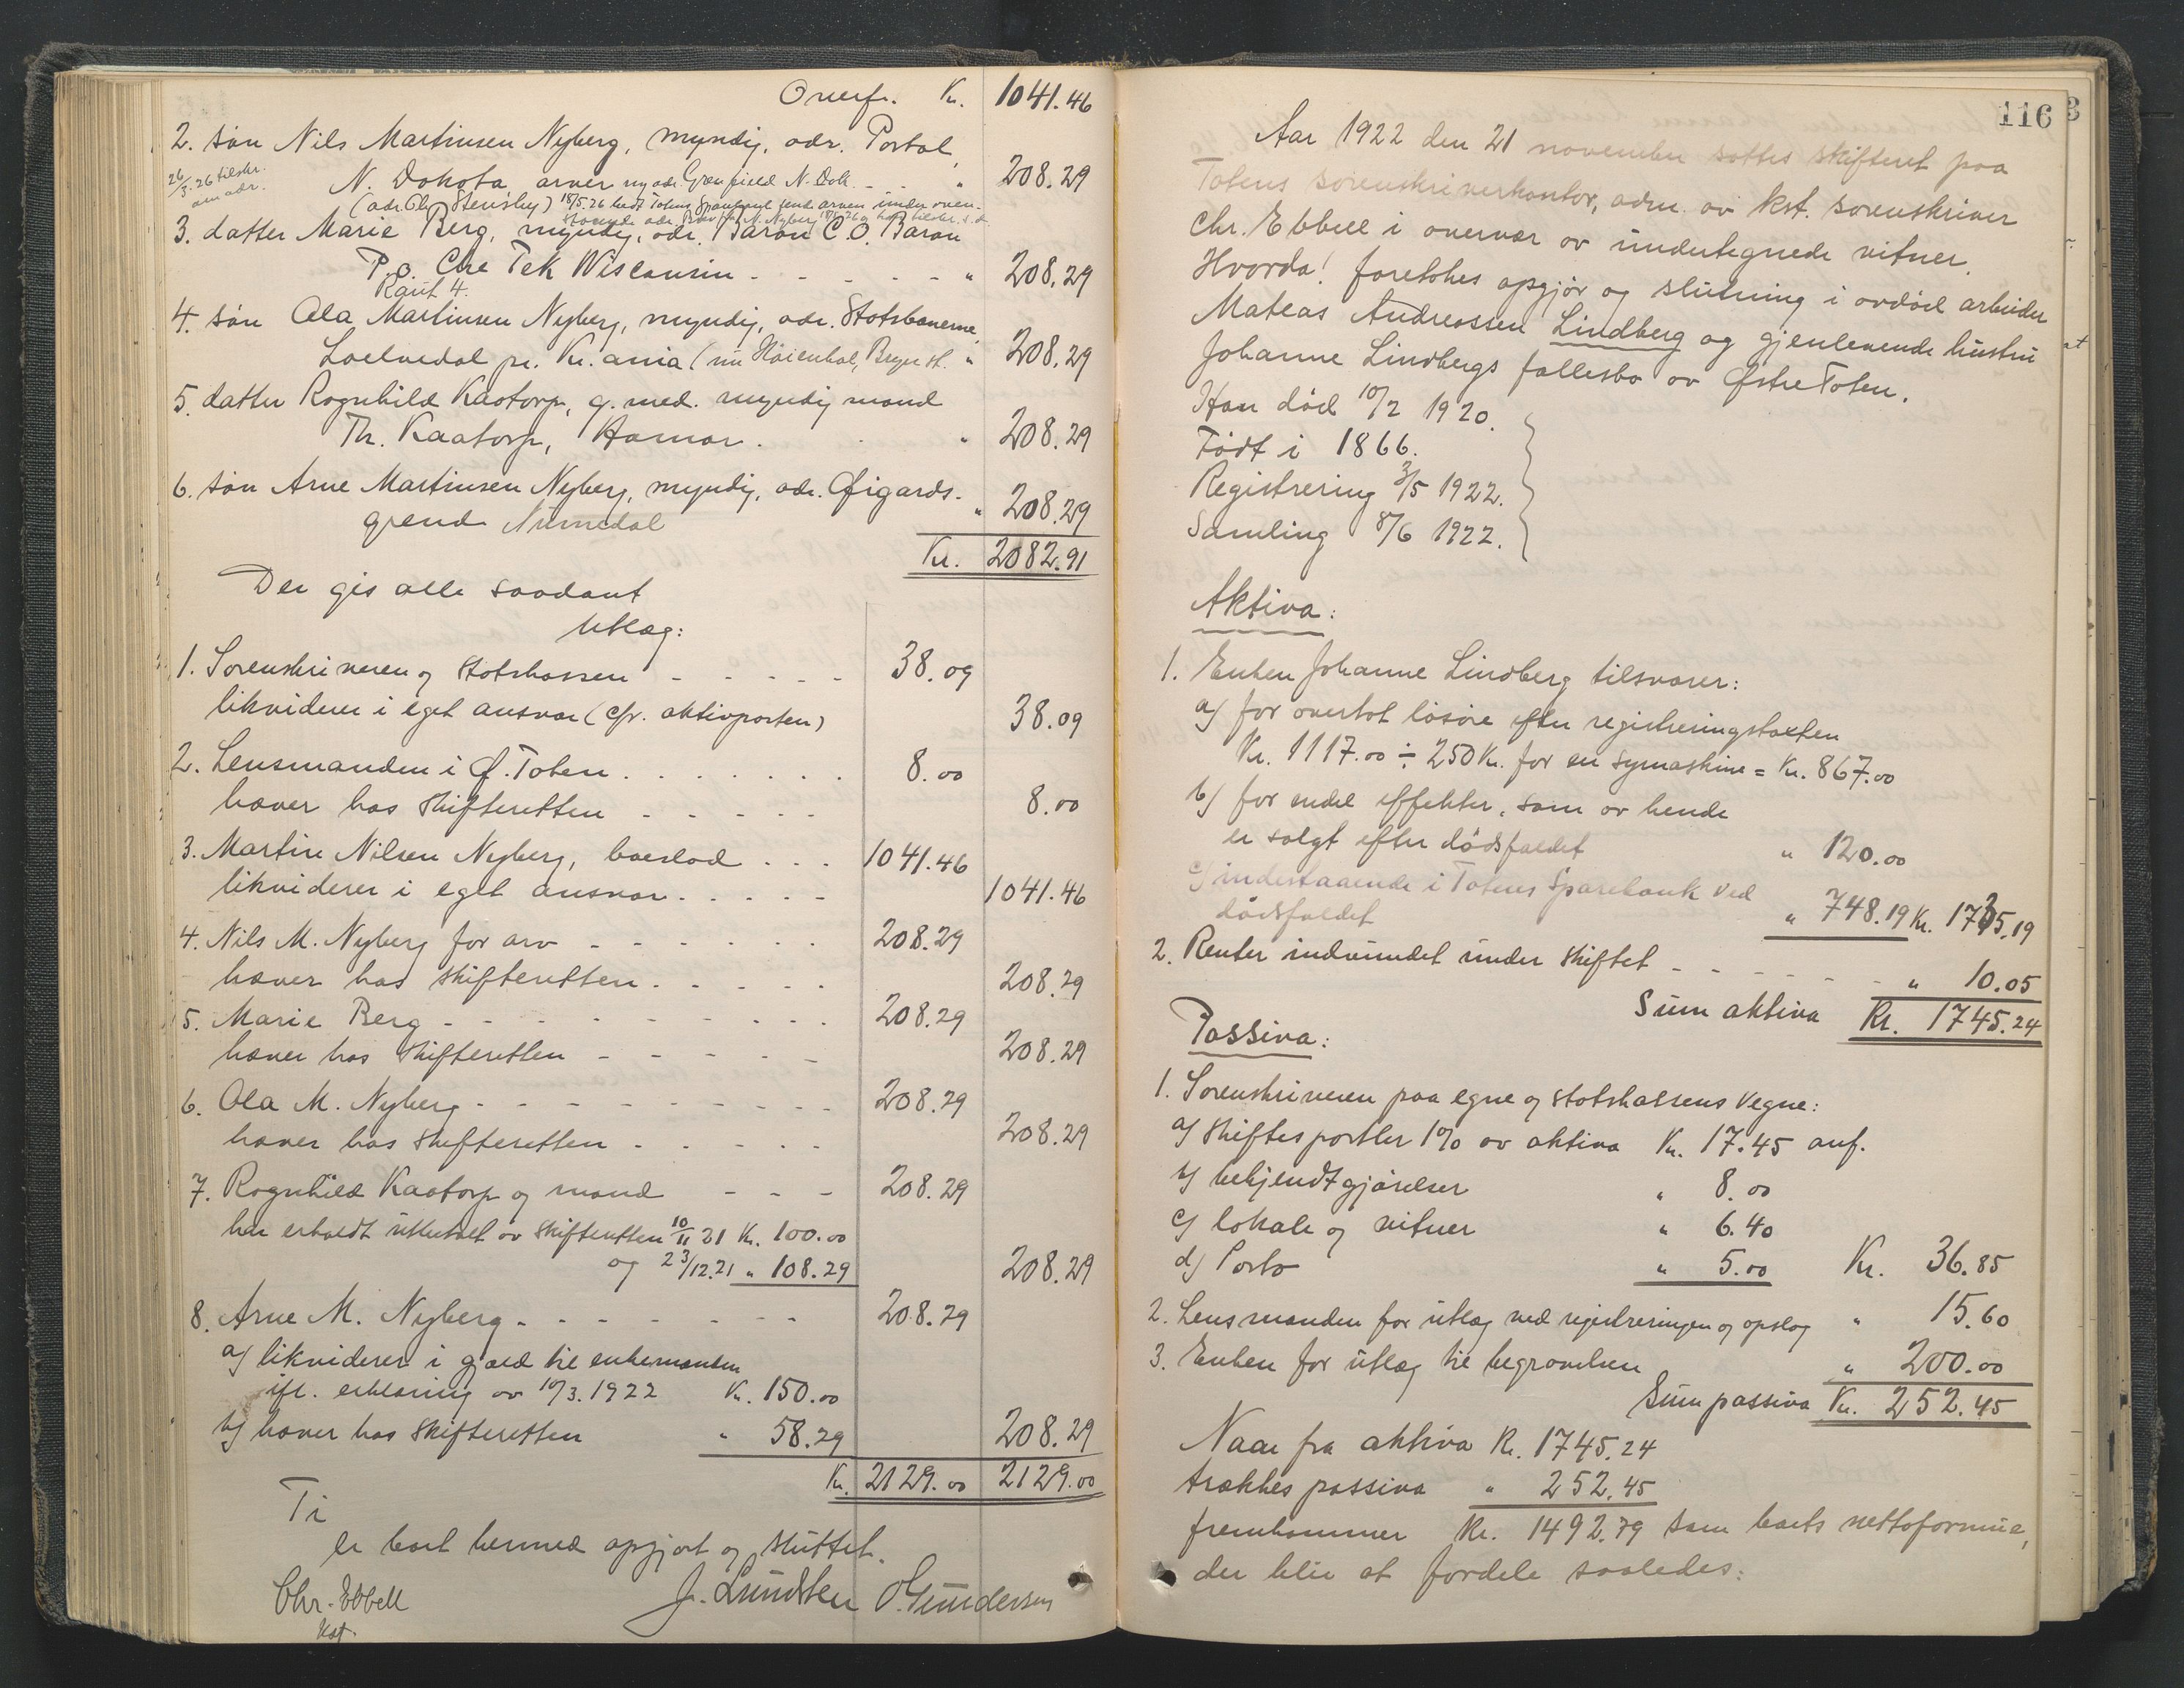 Overf. Kr. 1041.46
2. søn Nils Martinsen Nyberg, myndig, adr. Portal,
N. Dakota, arver ny adr. Grenfield N. Dak. - - " 208.29
26/3.26 tilskr. om adr.
(adr. Stensby) 18/5.26 bedt Totens Sparebank sende arven under oven-
staaende adr. Brev fra N. Nyberg
3. datter Marie Berg, myndig, adr. Baron C.O. Baron
P.o. Che Tek Wisconsin - - - - - " 208.29
Raut 4.
4. søn Ola Martinsen Nyberg, myndig, adr. Statsbanerne,
Loelvedal pr. Kr.ania (nu Høienhal, Bryn st. " 208.29
5. datter Ragnhild Kaatorp, g. med. myndig mand
Th. Kaatorp, Hamar. . " 208.29
6. søn Arne Martinsen Nyberg, myndig, adr. Øigards-
grend Numedal " 208.29
Kr. 2082.91
Der gis alle saadant
Utlæg:
1. Sorenskriveren og Statskassen - - - - - 38.09
likviderer i eget ansvar (cfr. aktivposten) 38.09
2. Lensmanden i Ø. Toten . . . . . . . 8.00
hæver hos skifteretten - - - - - 8.00
3. Martin Nilsen Nyberg, boeslod . . . 1041.46
likviderer i eget ansvar . . . . . 1041.46
4. Nils M. Nyberg for arv - - - - - - 208.29
hæver hos skifteretten . . . . . 208.29
5. Marie Berg - - - - - - - - - 208.29
hæver hos skifteretten - - - - - 208.29
6. Ola M. Nyberg - - - - - - - - - 208.29
hæver hos skifteretten - - - - 208.29
7. Ragnhild Kaatorp og mand - - - 208.29
har erholdt utbetalt av skifteretten 10/11 21 Kr. 100.00
og 23/12.21 " 108.29 208.29
8. Arne M. Nyberg - - - - - - - 208.29
a) likviderer i gjæld til enkemanden
ifl. erklæring av 10/3.1922 Kr. 150.00
b) hæver hos skifteretten " 58.29 208.29
Kr. 2129.00 2129.00
Ti
er boet hermed opgjort og sluttet.
Chr. Ebbell J. Lundsten O. Gundersen
kst.
116
Aar 1922 den 21 november sattes skifteret paa
Totens sorenskriverkontor, adm. av kst. sorenskriver
Chr. Ebbell i overvær av undertegnede vitner.
Hvorda! foretokes opgjør og slutning i avdød arbeider
Mateas Andreassen Lindberg og gjenlevende hustru
Johanne Lindbergs fællesbo av Østre Toten.
Han død 10/2 1920.
Født i 1866.
Registrering 3/5 1922.
Samling 8/6 1922.
Aktiva:
1. Enken Johanne Lindberg tilsvarer:
a) for overtat løsøre efter registreringstaksten
Kr. 1117.00 ÷ 250 Kr. for en symaskine = Kr. 867.00
b) for endel effekter, som av hende
er solgt efter dødsfaldet " 120.00
c) indestaaende i Totens Sparebank ved
dødsfaldet " 748.19 Kr. 1735.19
2. Renter indvundet under skiftet - - - - - - " 10.05
Sum aktiva Kr. 1745.24
Passiva:
1. Sorenskriveren paa egne og statskassens vegne:
a) skiftesportler 1% av aktiva Kr. 17.45 anf.
b) bekjendtgjørelser " 8.00
c) lokale og vitner " 6.40
d) Porto " 5.00 Kr. 36.85
2. Lensmanden for utlæg ved registreringen og opslag " 15.60
3. Enken for utlæg til begravelsen " 200.00
Sum passiva Kr. 252.45
Naar fra aktiva Kr. 1745.24
trækkes passiva " 252.45
fremkommer Kr. 1492.79 som boets nettoformue,
der blir at fordele saaledes: